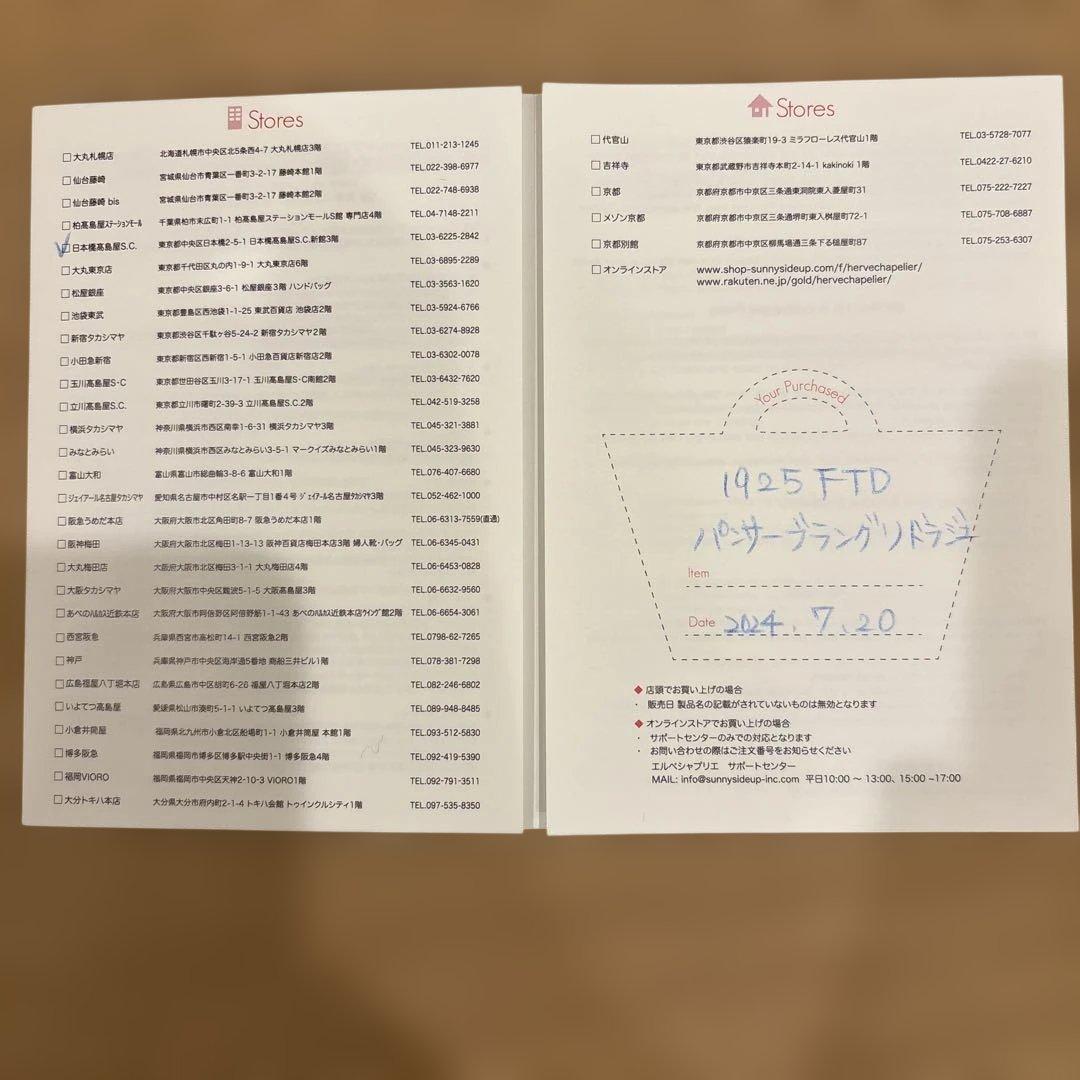 Stores
□ 大丸札幌店 北海道札幌市中央区北5条西4-7 大丸札幌店3階 TEL.011-213-1245
□ 仙台藤崎 宮城県仙台市青葉区一番町3-2-17 藤崎本館1階 TEL.022-398-6977
□ 仙台藤崎 bis 宮城県仙台市青葉区一番町3-2-17 藤崎本館2階 TEL.022-748-6938
□ 柏髙島屋ステーションモール 千葉県柏市末広町1-1 柏髙島屋ステーションモールS館 専門店4階 TEL.04-7148-2211
☑ 日本橋髙島屋S.C. 東京都中央区日本橋2-5-1 日本橋髙島屋S.C.新館3階 TEL.03-6225-2842
□ 大丸東京店 東京都千代田区丸の内1-9-1 大丸東京店6階 TEL.03-6895-2289
□ 松屋銀座 東京都中央区銀座3-6-1 松屋銀座3階 ハンドバッグ TEL.03-3563-1620
□ 池袋東武 東京都豊島区西池袋1-1-25 東武百貨店 池袋店2階 TEL.03-5924-6766
□ 新宿タカシマヤ 東京都渋谷区千駄ヶ谷5-24-2 新宿タカシマヤ2階 TEL.03-6274-8928
□ 小田急新宿 東京都新宿区西新宿1-5-1 小田急百貨店新宿店2階 TEL.03-6302-0078
□ 玉川髙島屋S・C 東京都世田谷区玉川3-17-1 玉川髙島屋S・C南館2階 TEL.03-6432-7620
□ 立川髙島屋S.C. 東京都立川市曙町2-39-3 立川髙島屋S.C.2階 TEL.042-519-3258
□ 横浜タカシマヤ 神奈川県横浜市西区南幸1-6-31 横浜タカシマヤ3階 TEL.045-321-3881
□ みなとみらい 神奈川県横浜市西区みなとみらい3-5-1 マークイズみなとみらい1階 TEL.045-323-9630
□ 富山大和 富山県富山市総曲輪3-8-6 富山大和1階 TEL.076-407-6680
□ ジェイアール名古屋タカシマヤ 愛知県名古屋市中村区名駅一丁目1番4号 ジェイアール名古屋タカシマヤ3階 TEL.052-462-1000
□ 阪急うめだ本店 大阪府大阪市北区角田町8-7 阪急うめだ本店1階 TEL.06-6313-7559(直通)
□ 阪神梅田 大阪府大阪市北区梅田1-13-13 阪神百貨店梅田本店3階 婦人靴・バッグ TEL.06-6345-0431
□ 大丸梅田店 大阪府大阪市北区梅田3-1-1 大丸梅田店4階 TEL.06-6453-0828
□ 大阪タカシマヤ 大阪府大阪市中央区難波5-1-5 大阪髙島屋3階 TEL.06-6632-9560
□ あべのハルカス近鉄本店 大阪府大阪市阿倍野区阿倍野筋1-1-43 あべのハルカス近鉄本店ウイング館2階 TEL.06-6654-3061
□ 西宮阪急 兵庫県西宮市高松町14-1 西宮阪急2階 TEL.0798-62-7265
□ 神戸 兵庫県神戸市中央区海岸通5番地 商船三井ビル1階 TEL.078-381-7298
□ 広島福屋八丁堀本店 広島県広島市中区胡町6-26 福屋八丁堀本店2階 TEL.082-246-6802
□ いよてつ髙島屋 愛媛県松山市湊町5-1-1 いよてつ髙島屋3階 TEL.089-948-8485
□ 小倉井筒屋 福岡県北九州市小倉北区船場町1-1 小倉井筒屋 本館1階 TEL.093-512-5830
□ 博多阪急 福岡県福岡市博多区博多駅中央街1-1 博多阪急4階 TEL.092-419-5390
□ 福岡VIORO 福岡県福岡市中央区天神2-10-3 VIORO1階 TEL.092-791-3511
□ 大分トキハ本店 大分県大分市府内町2-1-4 トキハ会館 トゥインクルシティ1階 TEL.097-535-8350
Stores
□ 代官山 東京都渋谷区猿楽町19-3 ミラフローレス代官山1階 TEL.03-5728-7077
□ 吉祥寺 東京都武蔵野市吉祥寺本町2-14-1 kakinoki 1階 TEL.0422-27-6210
□ 京都 京都府京都市中京区三条通東洞院東入菱屋町31 TEL.075-222-7227
□ メゾン京都 京都府京都市中京区三条通堺町東入桝屋町72-1 TEL.075-708-6887
□ 京都別館 京都府京都市中京区柳馬場通三条下る槌屋町87 TEL.075-253-6307
□ オンラインストア www.shop-sunnysideup.com/f/hervechapelier/
www.rakuten.ne.jp/gold/hervechapelier/
Your Purchased
1925 FTD
パンサーブラングリドラジェ
Item
Date 2024.7.20
◆ 店頭でお買い上げの場合
・ 販売日 製品名の記載がされていないものは無効となります
◆ オンラインストアでお買い上げの場合
・ サポートセンターのみでの対応となります
・ お問い合わせの際はご注文番号をお知らせください
エルベシャプリエ サポートセンター
MAIL: info@sunnysideup-inc.com 平日10:00 ～ 13:00、15:00 ~17:00